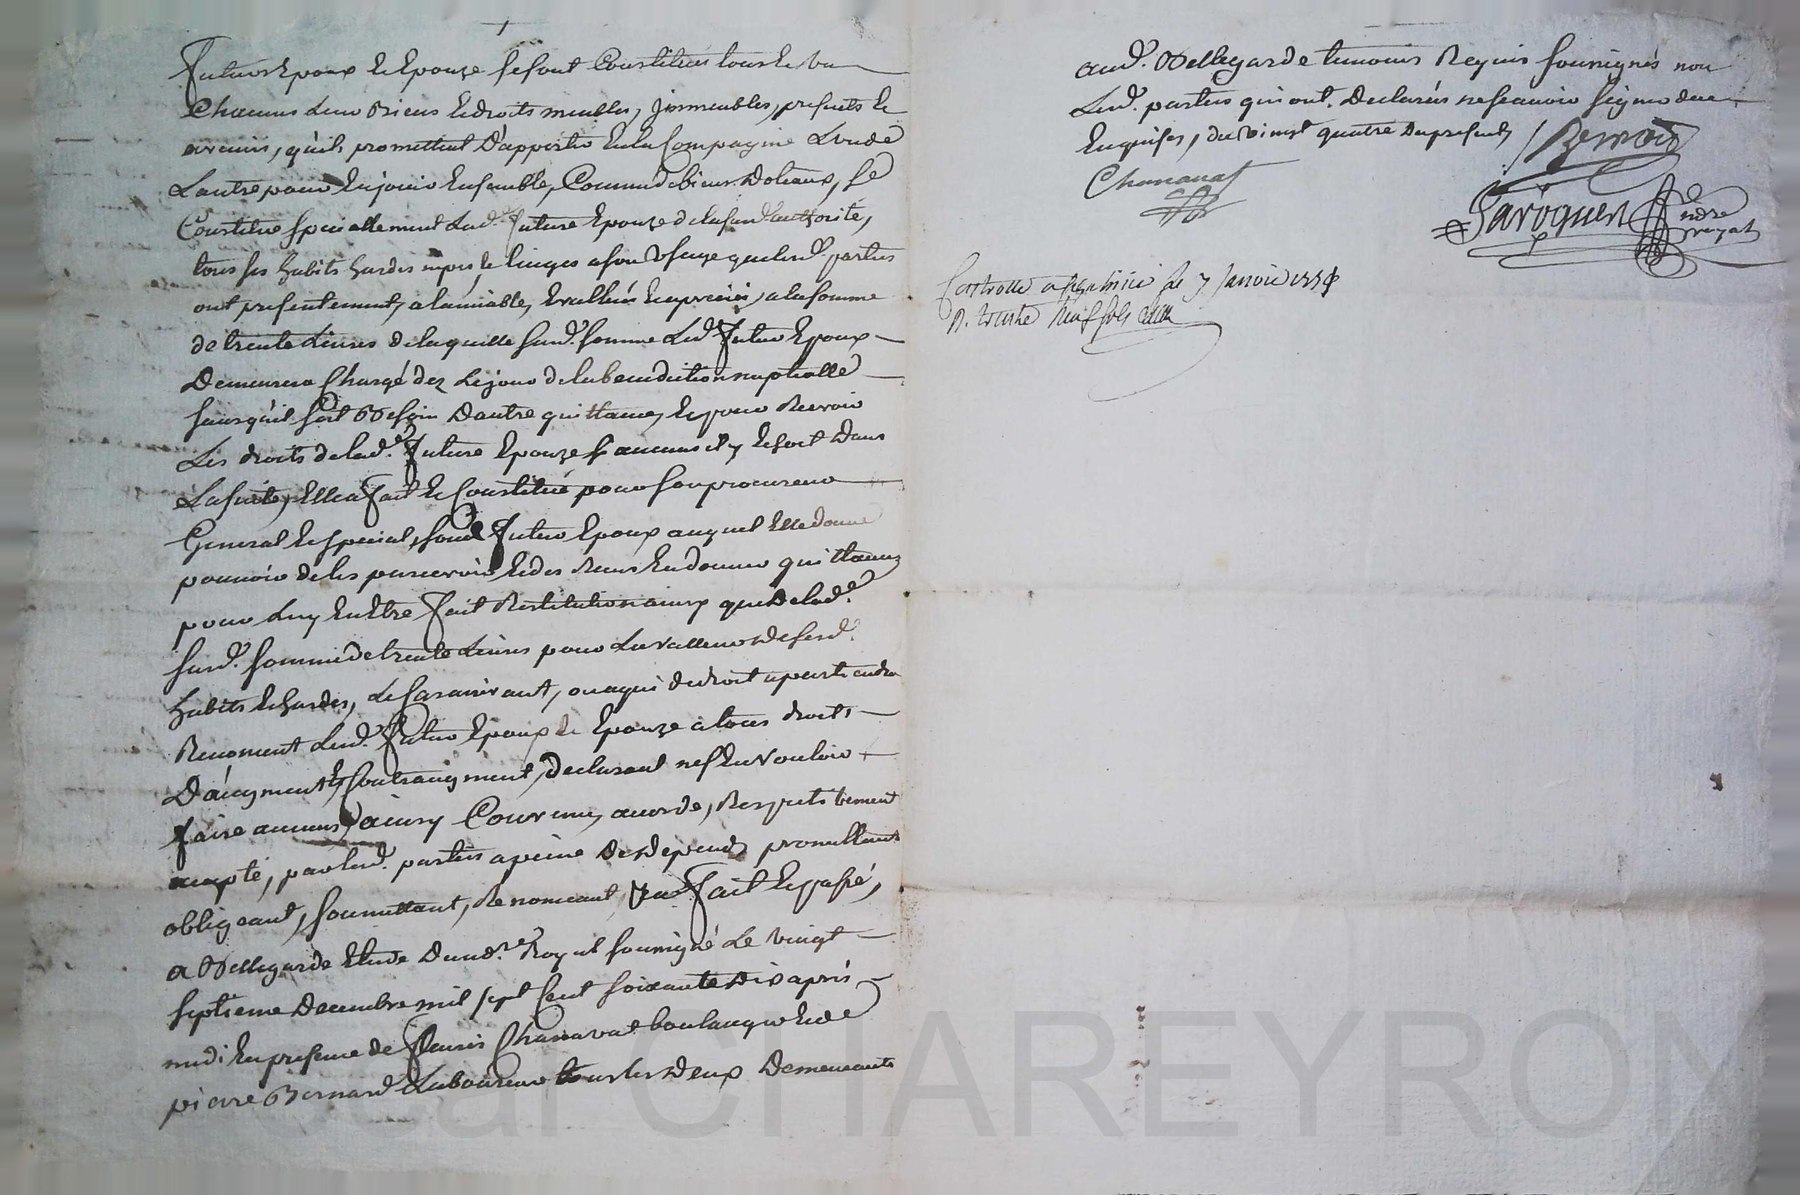 futurs Epoux Et Epouze se sont Constitués tous Et un
Chacuns Leur Biens Et droits meubles, immeubles, presents Et
avenir, qu'ils promettent D'apporter En la Compagnie L'un de
L'autre pour En jouir Ensemble, Comme de biens Dotaux, se
Constitue specialement Lad.e future Epouze de lasusd.e authorité,
tous ses habits hardes nipes Et linges a son Usage que lesd. parties
ont presentement, a l'amiable, Evallués Et apreciés, a la somme
de trente Livres de laquelle susd. somme Led. futur Epoux
Demeurera Chargé dez Le jour de la benediction nuptialle
sans qu'il soit Besoin D'autre quittance, Et pour Recevoir
Les droits de lad.e future Epouze s'aucuns il y Echoit Dans
La suite, Elle a fait Et Constitué pour son procureur
General Et special, sond. futur Epoux auquel Elle donne
pouvoir de les percevoir Et des Reçus En donner quittances
pour Luy En Etre fait Restitution ainsy que De lad.e
susd. somme de trente Livres pour La valleur de sesd.
habits Et hardes, Le cas arrivant, ou a qui de droit apartiendra
Renoncent Lesd. futur Epoux Et Epouze a tous droits
D'augment Et Contraugment, declarant ne s'En vouloir
faire aucuns, ainsy Convenu, acordé, Respectivement
accepté, par lesd. parties a peine De depends promettant
obligeant, soumettant, Renonceant, fait Et passé,
a Bellegarde Etude Dud. no.re Royal soussigné Le vingt
septieme Decembre mil sept Cent soixante Dix après
midi En presence de Chanavat boulanger Et de
pierre Bernard Laboureur tous les Deux Demeurants
aud. Bellegarde temoins Requis soussignés non
Lesd. parties qui ont Declarés ne scavoir signer de ce
Enquises, du vingt quatre Du present, Bernard
Chanavat
Paroquen ndre royal
Controllé a le 7 Janvier 177
R. trente neuf sols
car CHAREYRON